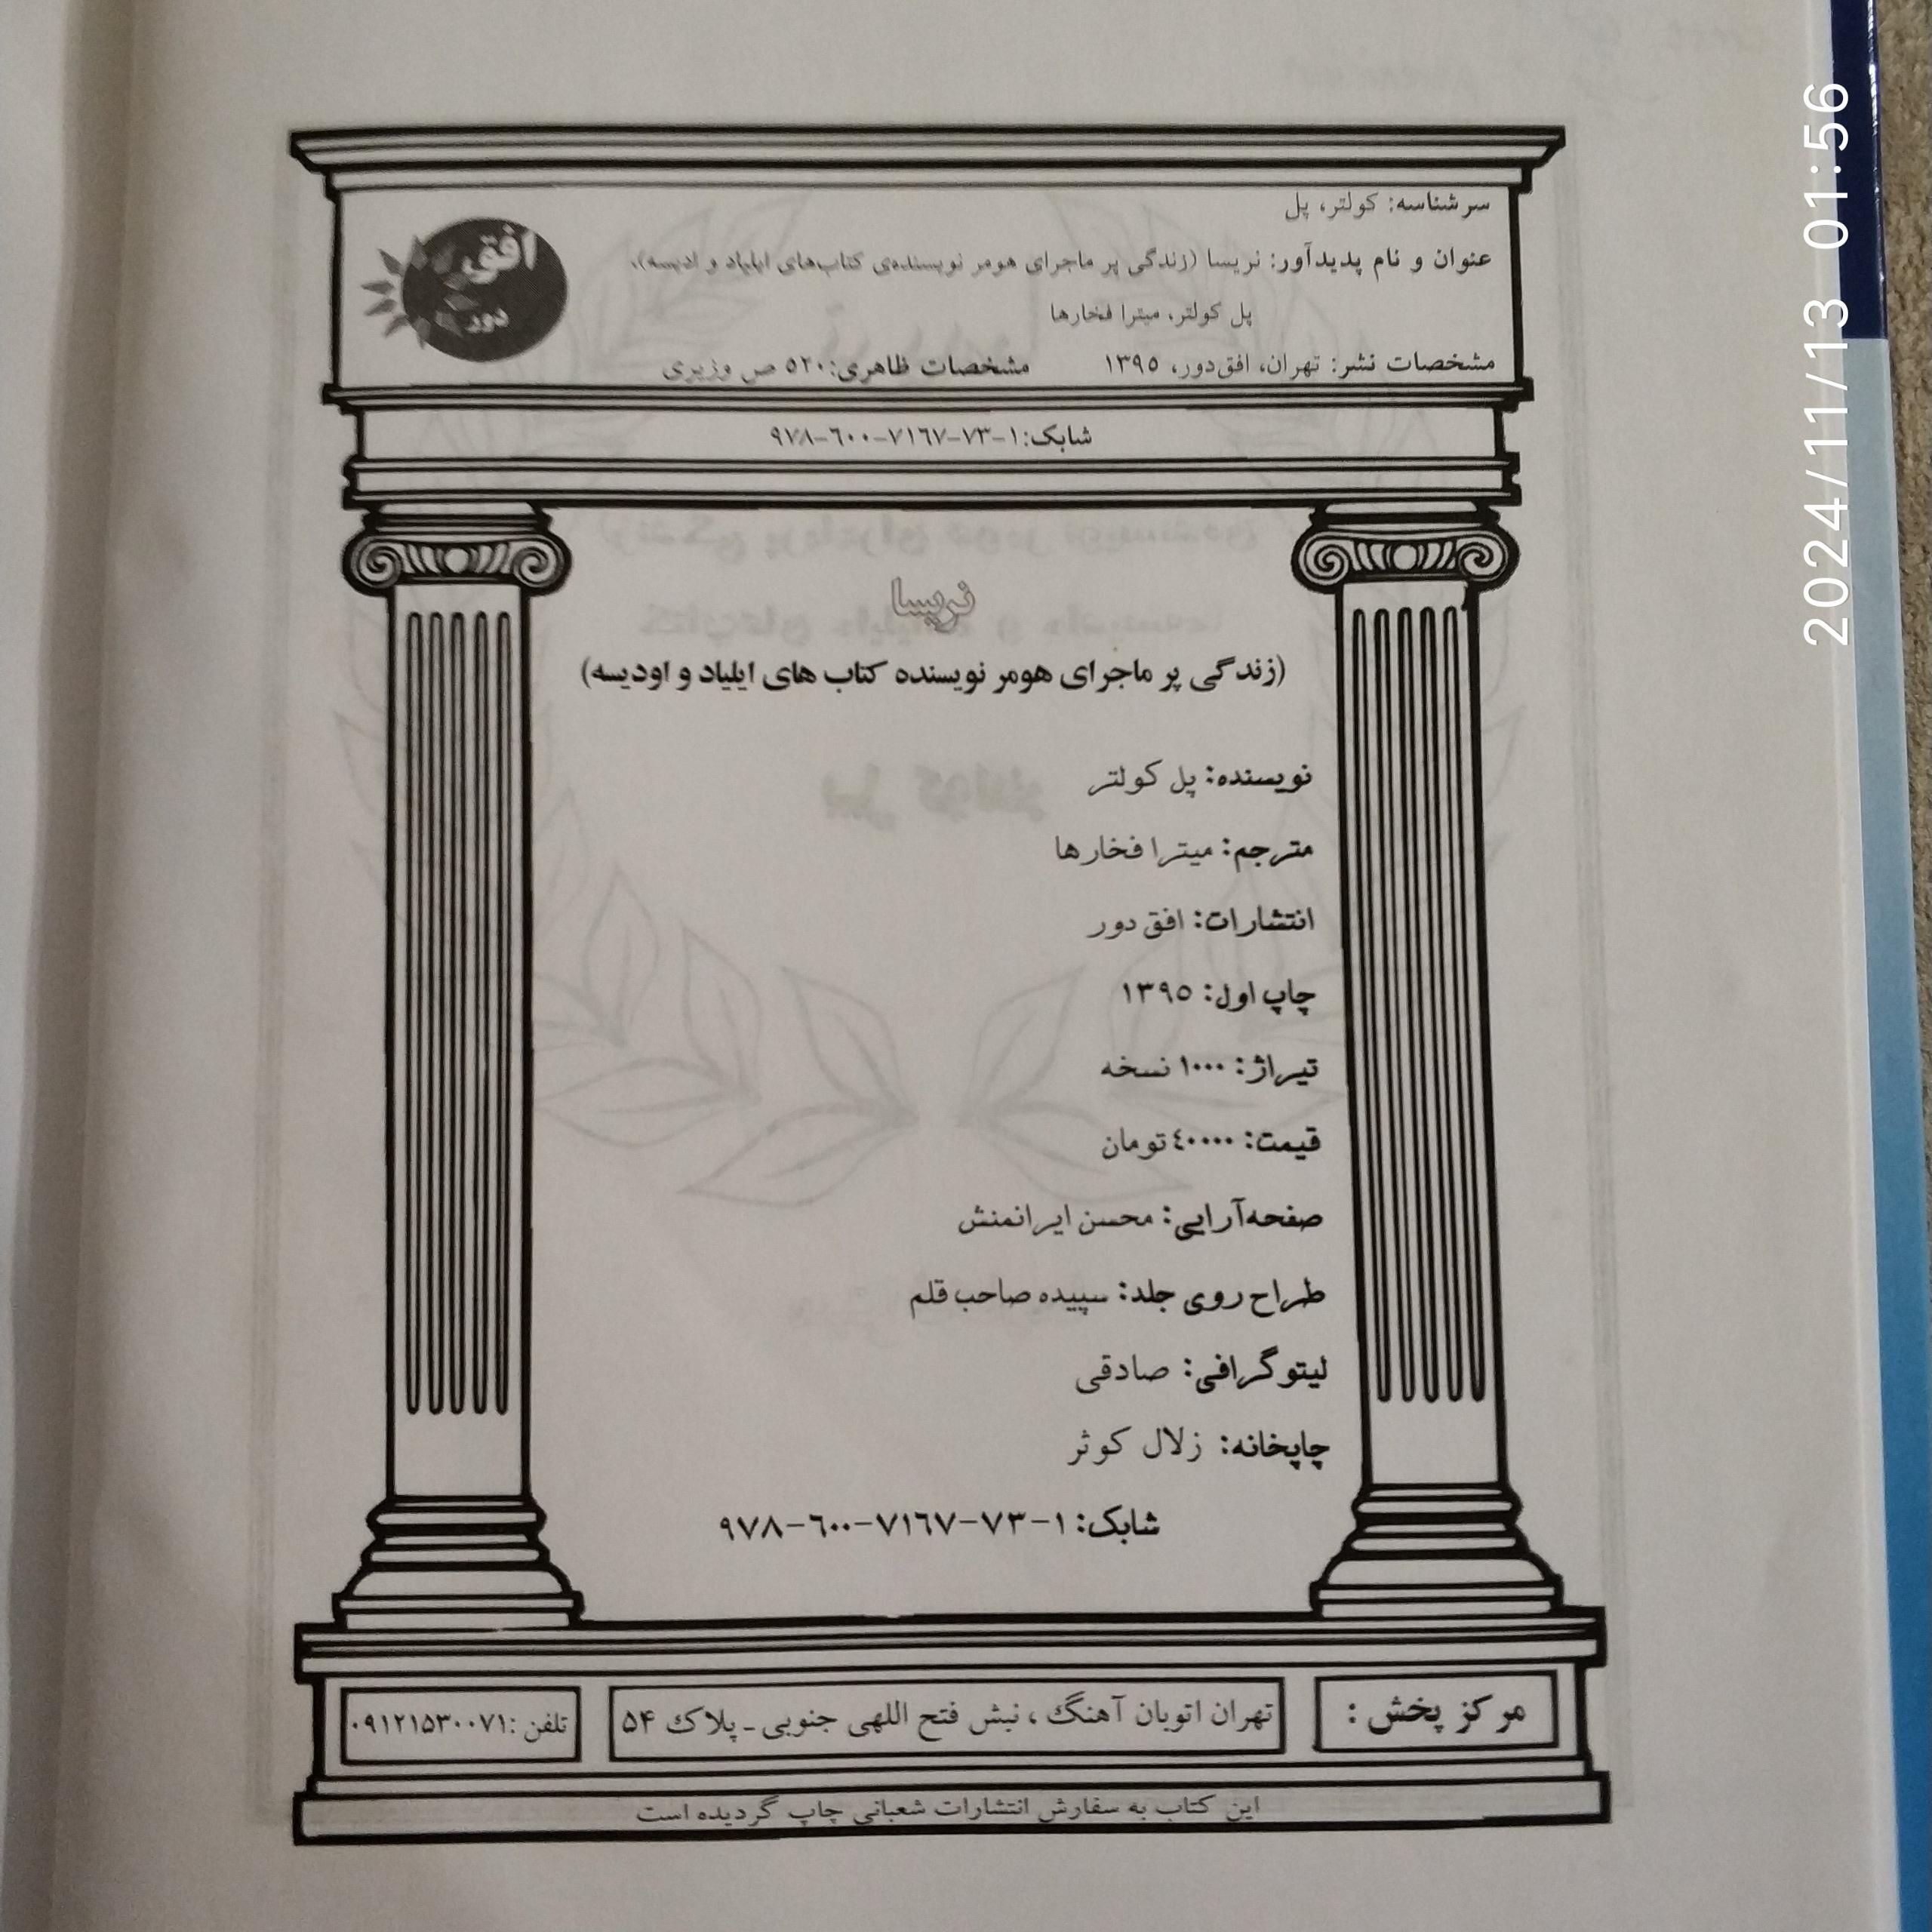 سرشناسه: کولتر، پل
عنوان و نام پدیدآور: نریسا (زندگی پر ماجرای هومر نویسنده‌ی کتاب‌های ایلیاد و ادیسه)،
پل کولتر، میترا فخارها
مشخصات نشر: تهران، افق‌دور، ۱۳۹۵ مشخصات ظاهری: ۵۲۰ ص وزیری
افق
دور
شابک: ۱-۷۳-۷۱۶۷-۶۰۰-۹۷۸
نریسا
(زندگی پر ماجرای هومر نویسنده کتاب های ایلیاد و اودیسه)
نویسنده: پل کولتر
مترجم: میترا فخارها
انتشارات: افق دور
چاپ اول: ۱۳۹۵
تیراژ: ۱۰۰۰ نسخه
قیمت: ۴۰۰۰۰ تومان
صفحه‌آرایی: محسن ایرانمنش
طراح روی جلد: سپیده صاحب قلم
لیتوگرافی: صادقی
چاپخانه: زلال کوثر
شابک: ۱-۷۳-۷۱۶۷-۶۰۰-۹۷۸
مرکز پخش :
تهران اتوبان آهنگ ، نبش فتح اللهی جنوبی ـ پلاک ۵۴
تلفن :۰۹۱۲۱۵۳۰۰۷۱
این کتاب به سفارش انتشارات شعبانی چاپ گردیده است
2024/11/13 01:56